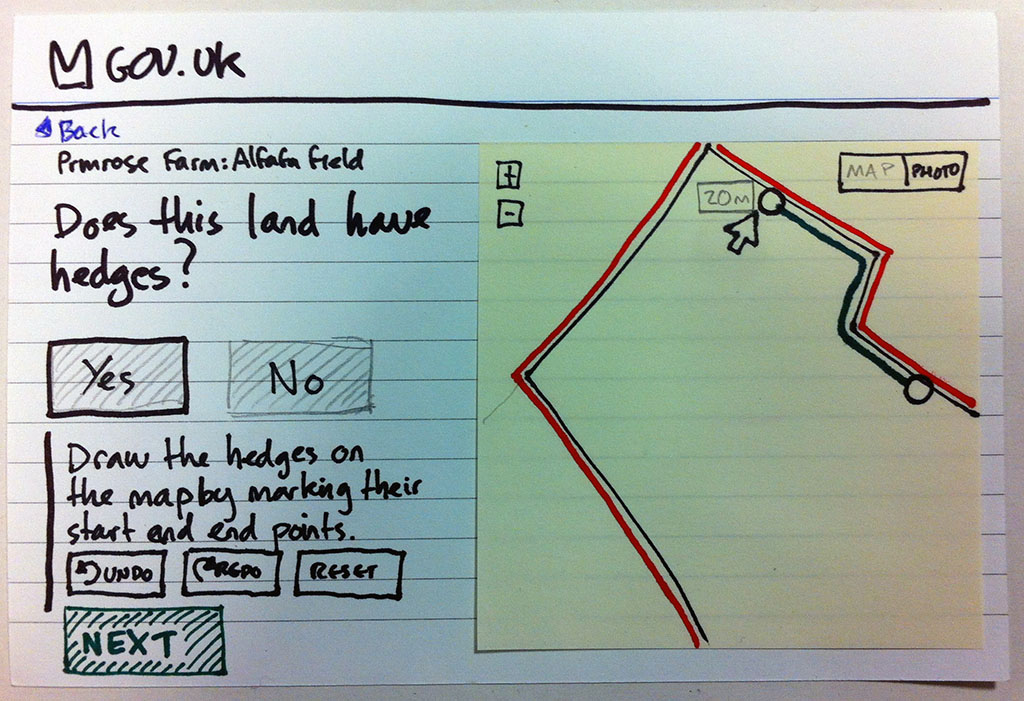 GOV.UK
Back
Primrose Farm: Alfafa field
Does this land have
hedges?
Yes
No
Draw the hedges on
the map by marking their
start and end points.
UNDO
REDO
RESET
NEXT
+
-
20m
MAP
PHOTO